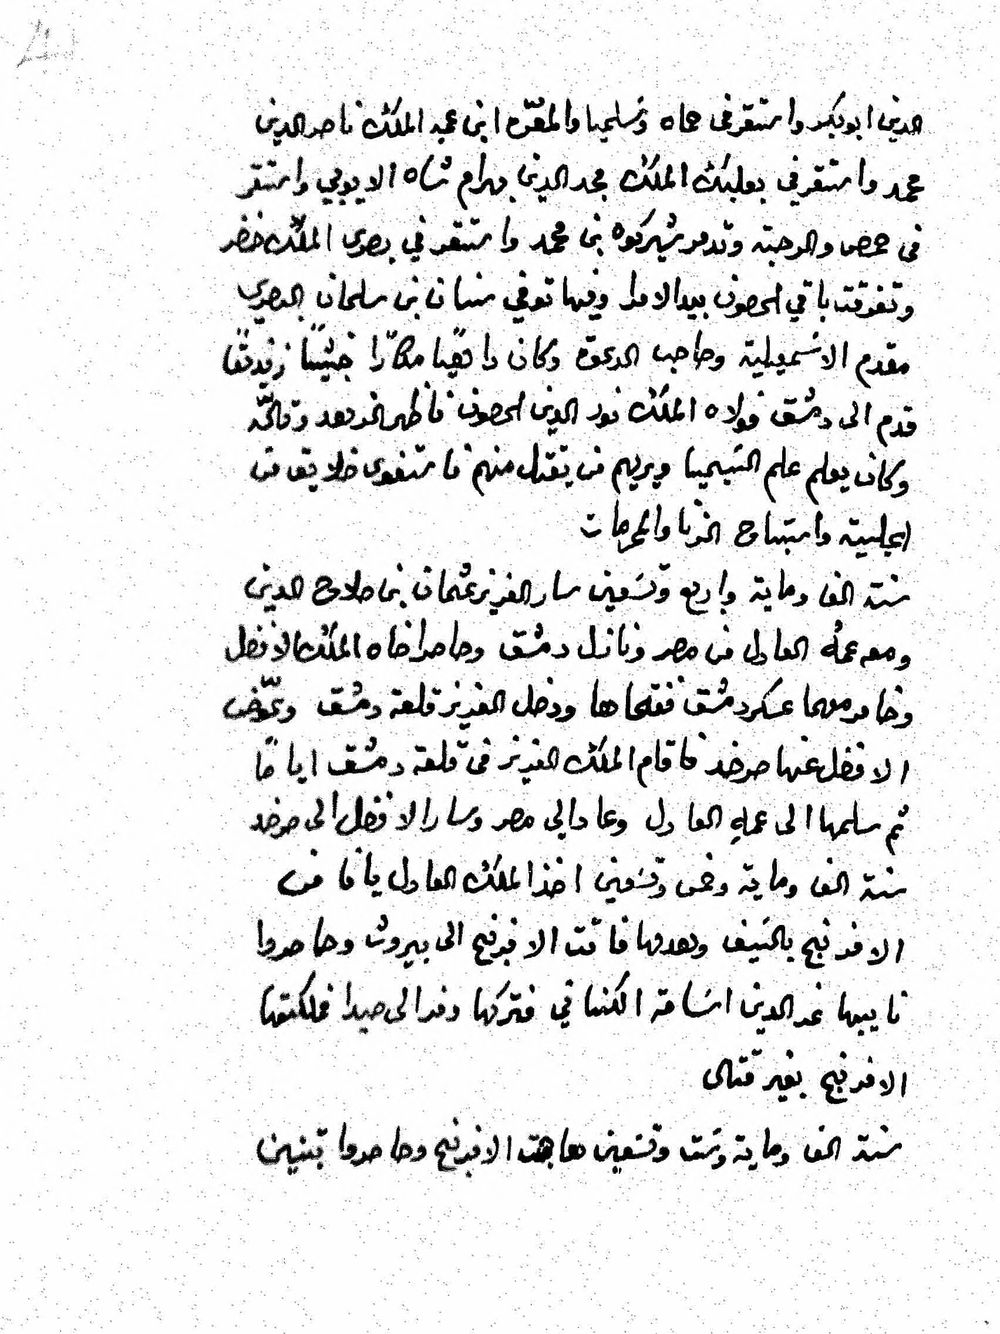 الدين ابو بكر واستقر في حماه وسلميا والمعرّه ابن عمه الملك ناصر الدين
محمد واستقر في بعلبك الملك مجد الدين بهرام شاه الايوبي واستقر
في حمص والرحبة وتدمر شيركوه بن محمد واستقر في بصرى الملك خضر
وتفرقت باقي الحصون بيد الامرا وفيها توفي سنان بن سلمان البصري
مقدم الاسمعيلية وصاحب الدعوة وكان داهيًا مكّارًا خبيثًا زنديقًا
قدم الى دمشق فولاه الملك نور الدين الحصون فاظهر الزهد
وكان يعلم علم السيميا ويريهم من يقتل منهم فاستغوى خلايق من
الجبلية واستباح الزنا والمحرمات
سنة الف وماية واربع وتسعين سار العزيز عثمان بن صلاح الدين
ومعه عمهُ العادل من مصر ونازل دمشق وحاصر اخاه الملك الافضل
وخامر معهما عسكر دمشق ففتحاها ودخل العزيز قلعة دمشق وعوّض
الافضل عنها صرخد فاقام الملك العزيز في قلعة دمشق ايامًا
ثم سلمها الى عمهِ العادل وعاد الى مصر وسار الافضل الى صرخد
سنة الف وماية وخمس وتسعين اخذ الملك العادل يافا من
الافرنج بالسيف وبعدها فاتت الافرنج الى بيروت وحاصروا
نايبها عز الدين اسامة الكناني فتركها وفر الى صيدا فملكتها
الافرنج بغير قتال
سنة الف وماية وست وتسعين هاجت الافرنج وحاصروا تبنين